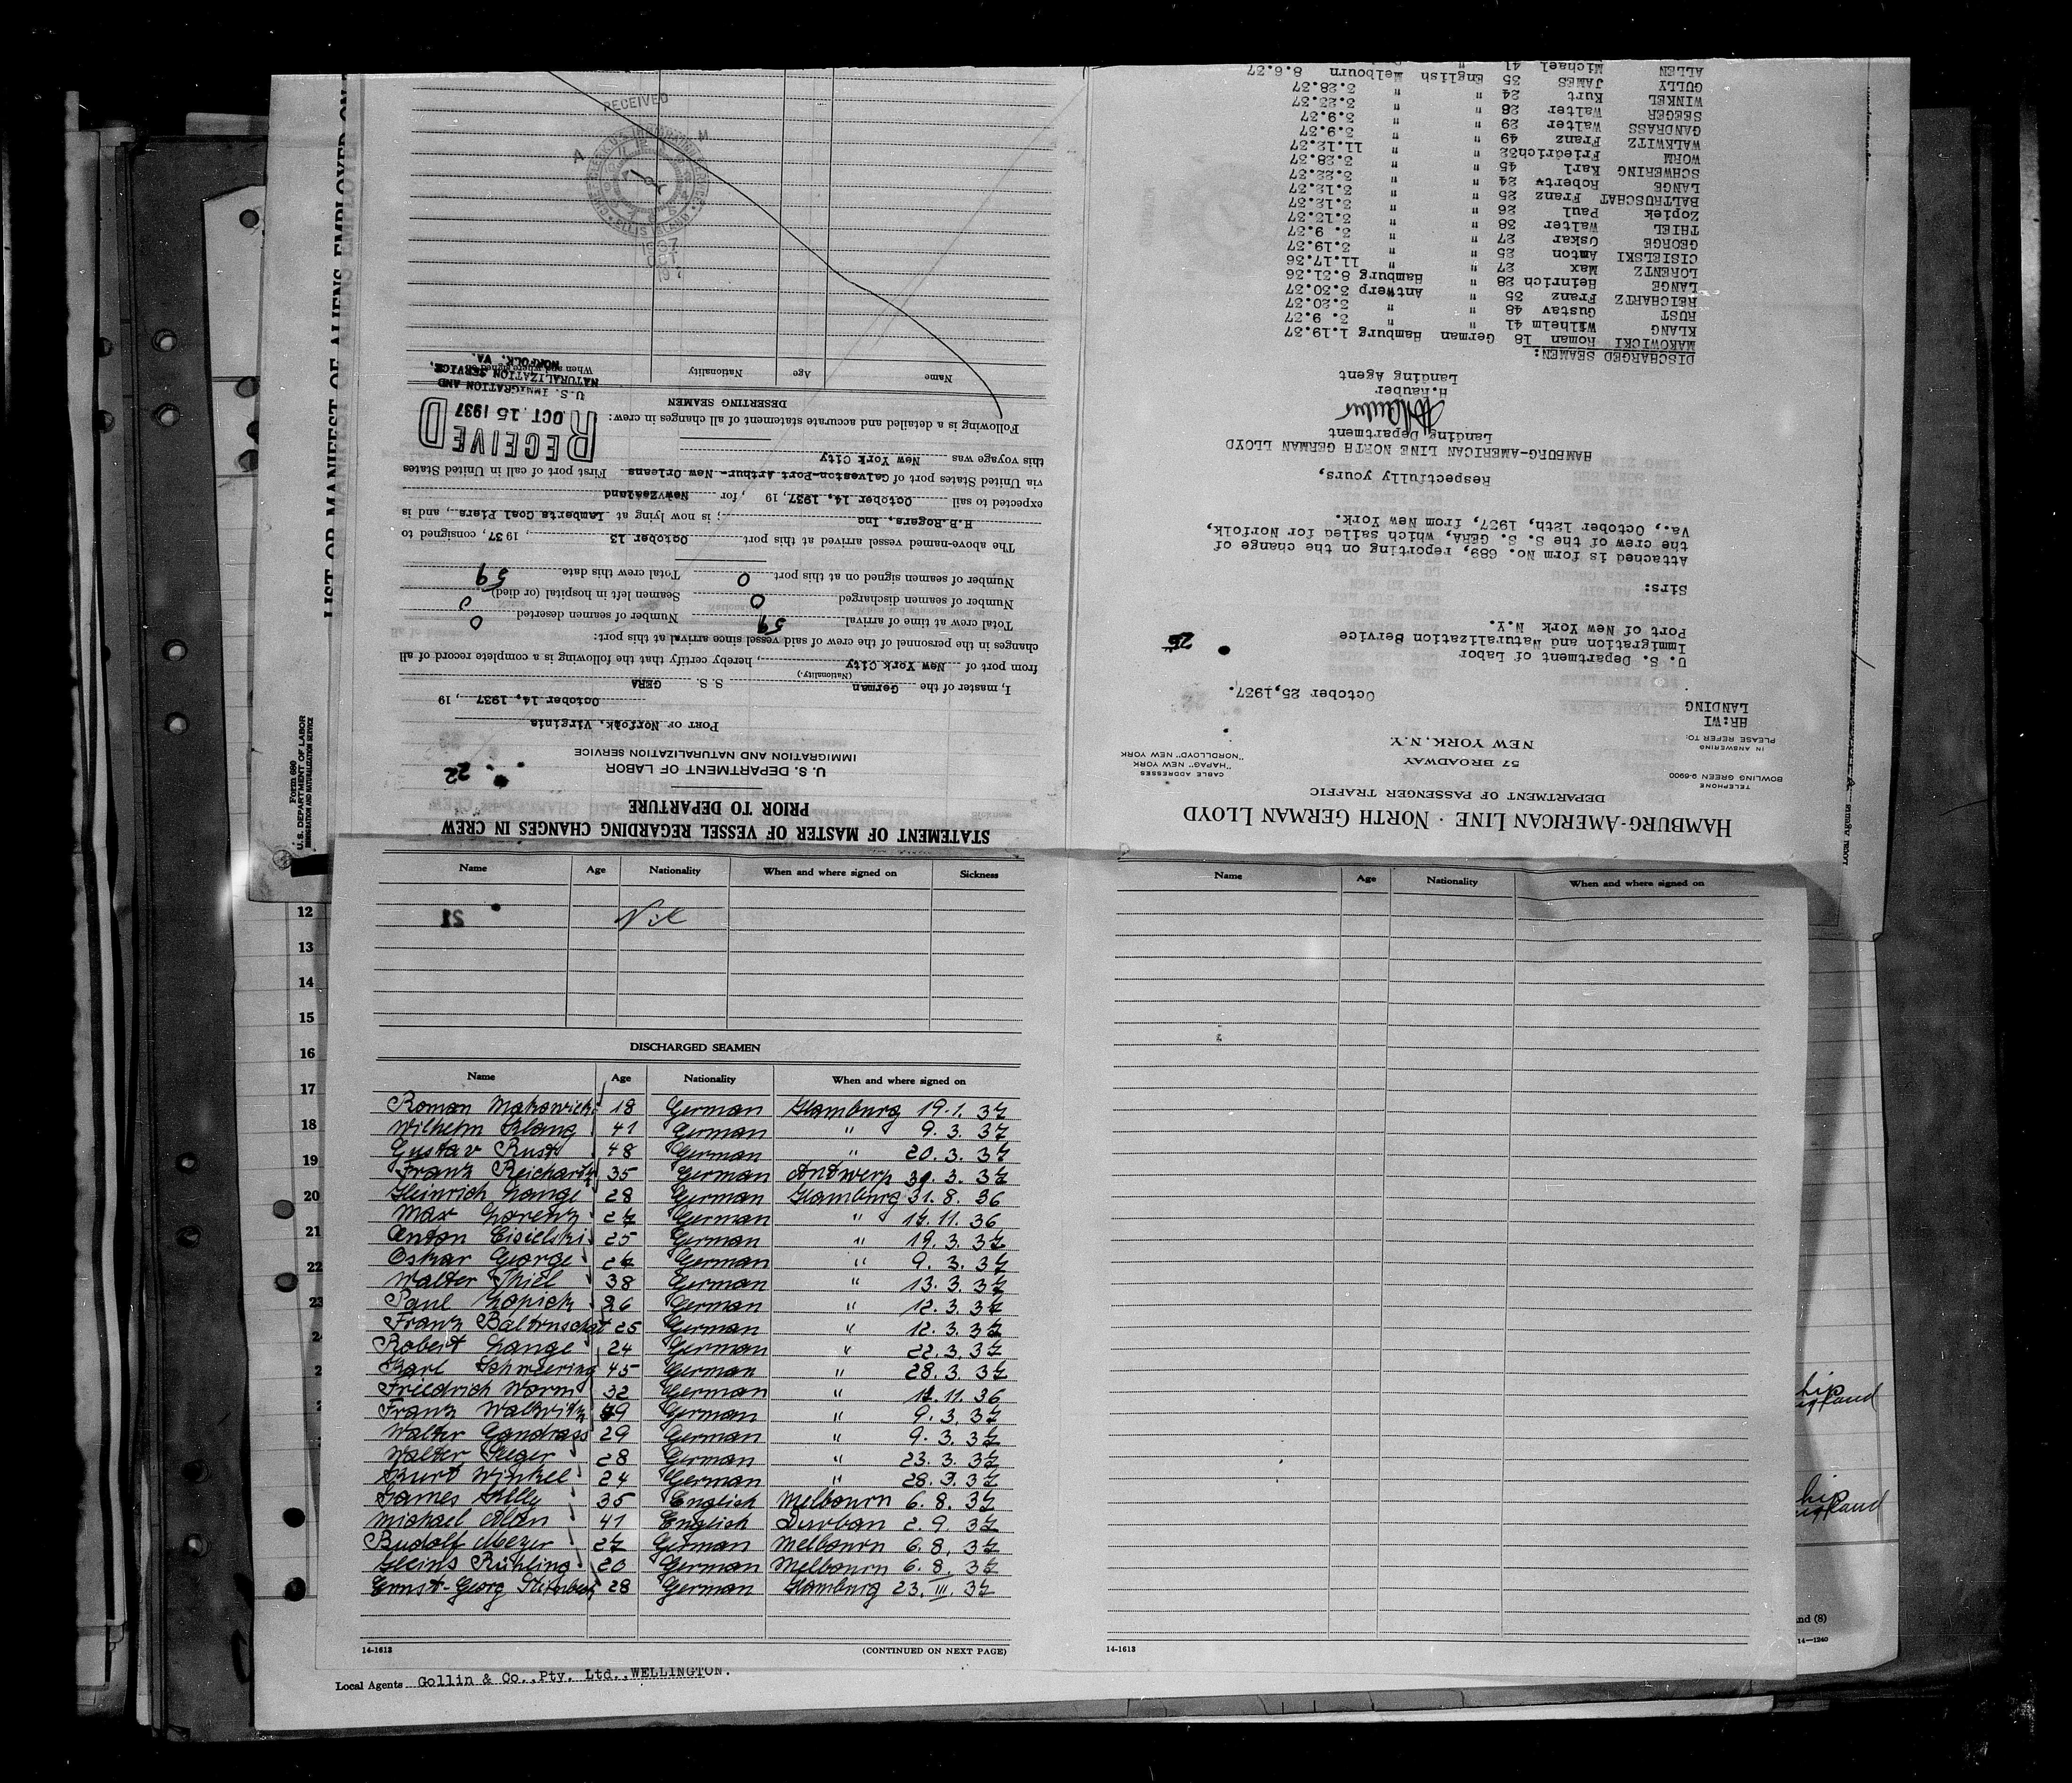 HAMBURG-AMERICAN LINE · NORTH GERMAN LLOYD
DEPARTMENT OF PASSENGER TRAFFIC
57 BROADWAY
NEW YORK, N.Y.
TELEPHONE
BOWLING GREEN 9-6900
CABLE ADDRESSES
"HAPAG" NEW YORK
"NORDLLOYD" NEW YORK
IN ANSWERING
PLEASE REFER TO:
HR:WI
LANDING
October 25,1937.
U. S. Department of Labor
Immigration and Naturalization Service
Port of New York N.Y.
25
Sirs:
Attached is form No. 689, reporting on the change of
the crew of the S. S. GERA, which sailed for Norfolk,
Va., October 12th, 1937, from New York.
Respectfully yours,
HAMBURG-AMERICAN LINE NORTH GERMAN LLOYD
Landing Department
H.Rauber
Landing Agent
DISCHARGED SEAMEN:
MAKOWICKI Roman 18 German Hamburg 1.19.37
KLANG Wilhelm 41 " " 3. 9.37
RUST Gustav 48 " " 3.20.37
REICHARTZ Franz 35 " Antwerp 3.30.37
LANGE Heinrich 28 " Hamburg 8.31.36
LORENTZ Max 27 " " 11.17.36
CISIELSKI Anton 25 " " 3.19.37
GEORGE Oskar 27 " " 3. 9.37
THIEL Walter 38 " " 3.13.37
Zopiek Paul 26 " " 3.12.37
BALTRUSCHAT Franz 25 " " 3.12.37
LANGE Robert 24 " " 3.22.37
SCHWERING Karl 45 " " 3.28.37
WORM Friedrich32 " " 11.12.37
WALKWITZ Franz 49 " " 3.9.37
GANDRASS Walter 29 " " 3.9.37
SEEGER Walter 28 " " 3.23.37
WINKEL Kurt 24 " " 3.28.37
GULLY JAMES 35 English Melbourn 8.6.37
ALLEN Michael 41 "
Form 689
U. S. DEPARTMENT OF LABOR
IMMIGRATION AND NATURALIZATION SERVICE
STATEMENT OF MASTER OF VESSEL REGARDING CHANGES IN CREW
PRIOR TO DEPARTURE
U. S. DEPARTMENT OF LABOR
IMMIGRATION AND NATURALIZATION SERVICE
22
PORT OF Norfolk, Virginia
October 14, 1937, 19
I, master of the German S. S. GERA
(Nationality.)
from port of New York City, hereby certify that the following is a complete record of all
changes in the personnel of the crew of said vessel since arrival at this port:
Total crew at time of arrival 59 Number of seamen deserted 0
Number of seamen discharged 0 Seamen left in hospital (or died) 0
Number of seamen signed on at this port 0 Total crew this date 59
The above-named vessel arrived at this port October 13, 1937, consigned to
H.B.Rogers, Inc; is now lying at Lamberts Coal Piers, and is
expected to sail October 14, 1937, 19 , for NewZealand
via United States port of Galveston-Port Arthur- New Orleans First port of call in United States
this voyage was New York City
Following is a detailed and accurate statement of all changes in crew:
RECEIVED
OCT. 15 1937
U. S. IMMIGRATION AND
NATURALIZATION SERVICE,
NORFOLK, VA.
DESERTING SEAMEN
Name Age Nationality When and where signed on
RECEIVED
A M
ELLIS ISLAND
1937
OCT
19
LIST OR MANIFEST OF ALIENS EMPLOYED ON
Name Age Nationality When and where signed on Sickness
Nil
12
13
14
15
16
17
18
19
20
21
22
23
DISCHARGED SEAMEN
Name Age Nationality When and where signed on
Roman Makowicki 18 German Hamburg 19.1. 37
Wilhelm Klang 41 German " 9. 3. 37
Gustav Rust 48 German " 20. 3. 37
Franz Reichartz 35 German Andwerp 30. 3. 37
Heinrich Lange 28 German Hamburg 31. 8. 36
Max Lorenz 27 German " 17. 11. 36
Anton Cisielski 25 German " 19. 3. 37
Oskar George 27 German " 9. 3. 37
Walter Thiel 38 German " 13. 3. 37
Paul Zopiek 26 German " 12. 3. 37
Franz Baltruschat 25 German " 12. 3. 37
Robert Lange 24 German " 22. 3. 37
Karl Schwering 45 German " 28. 3. 37
Friedrich Worm 32 German " 11. 36
Franz Walkwitz 49 German " 9. 3. 37
Walter Gandrass 29 German " 9. 3. 37
Walter Seeger 28 German " 23. 3. 37
Kurt Winkel 24 German " 28. 3. 37
James 35 Englisch Melbourn 6. 8. 37
Michael Allen 41 Englisch Durban 2. 9. 37
Rudolf Meyer 27 German Melbourn 6. 8. 37
Heins Rühling 20 German Melbourn 6. 8. 37
Ernst-Georg 28 German Hamburg 23. III. 37
14-1613 (CONTINUED ON NEXT PAGE)
Local Agents Gollin & Co.,Pty. Ltd.,WELLINGTON.
Name Age Nationality When and where signed on
14-1613
and (8)
14-1240